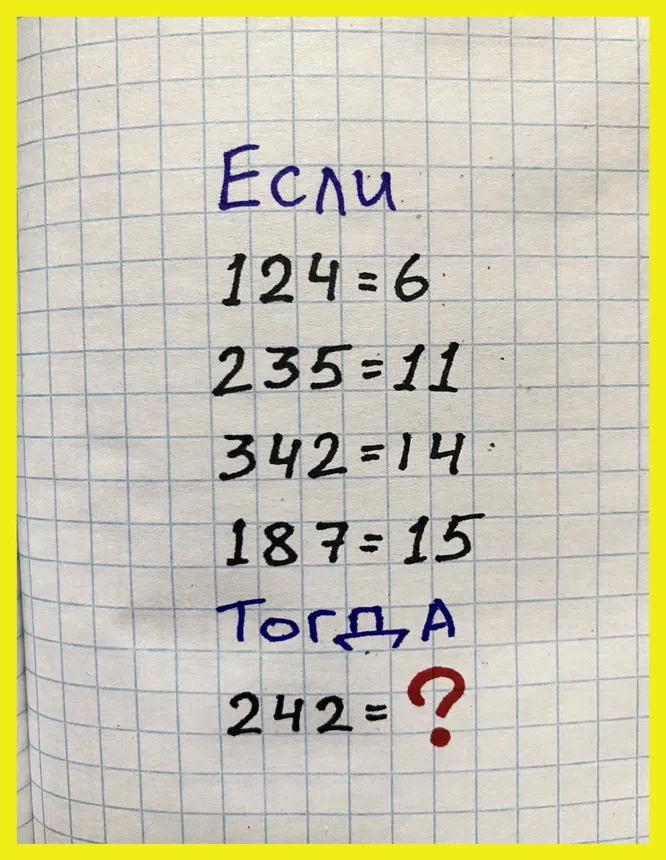 Если
124=6
235=11
342=14
187=15
Тогда
242=?